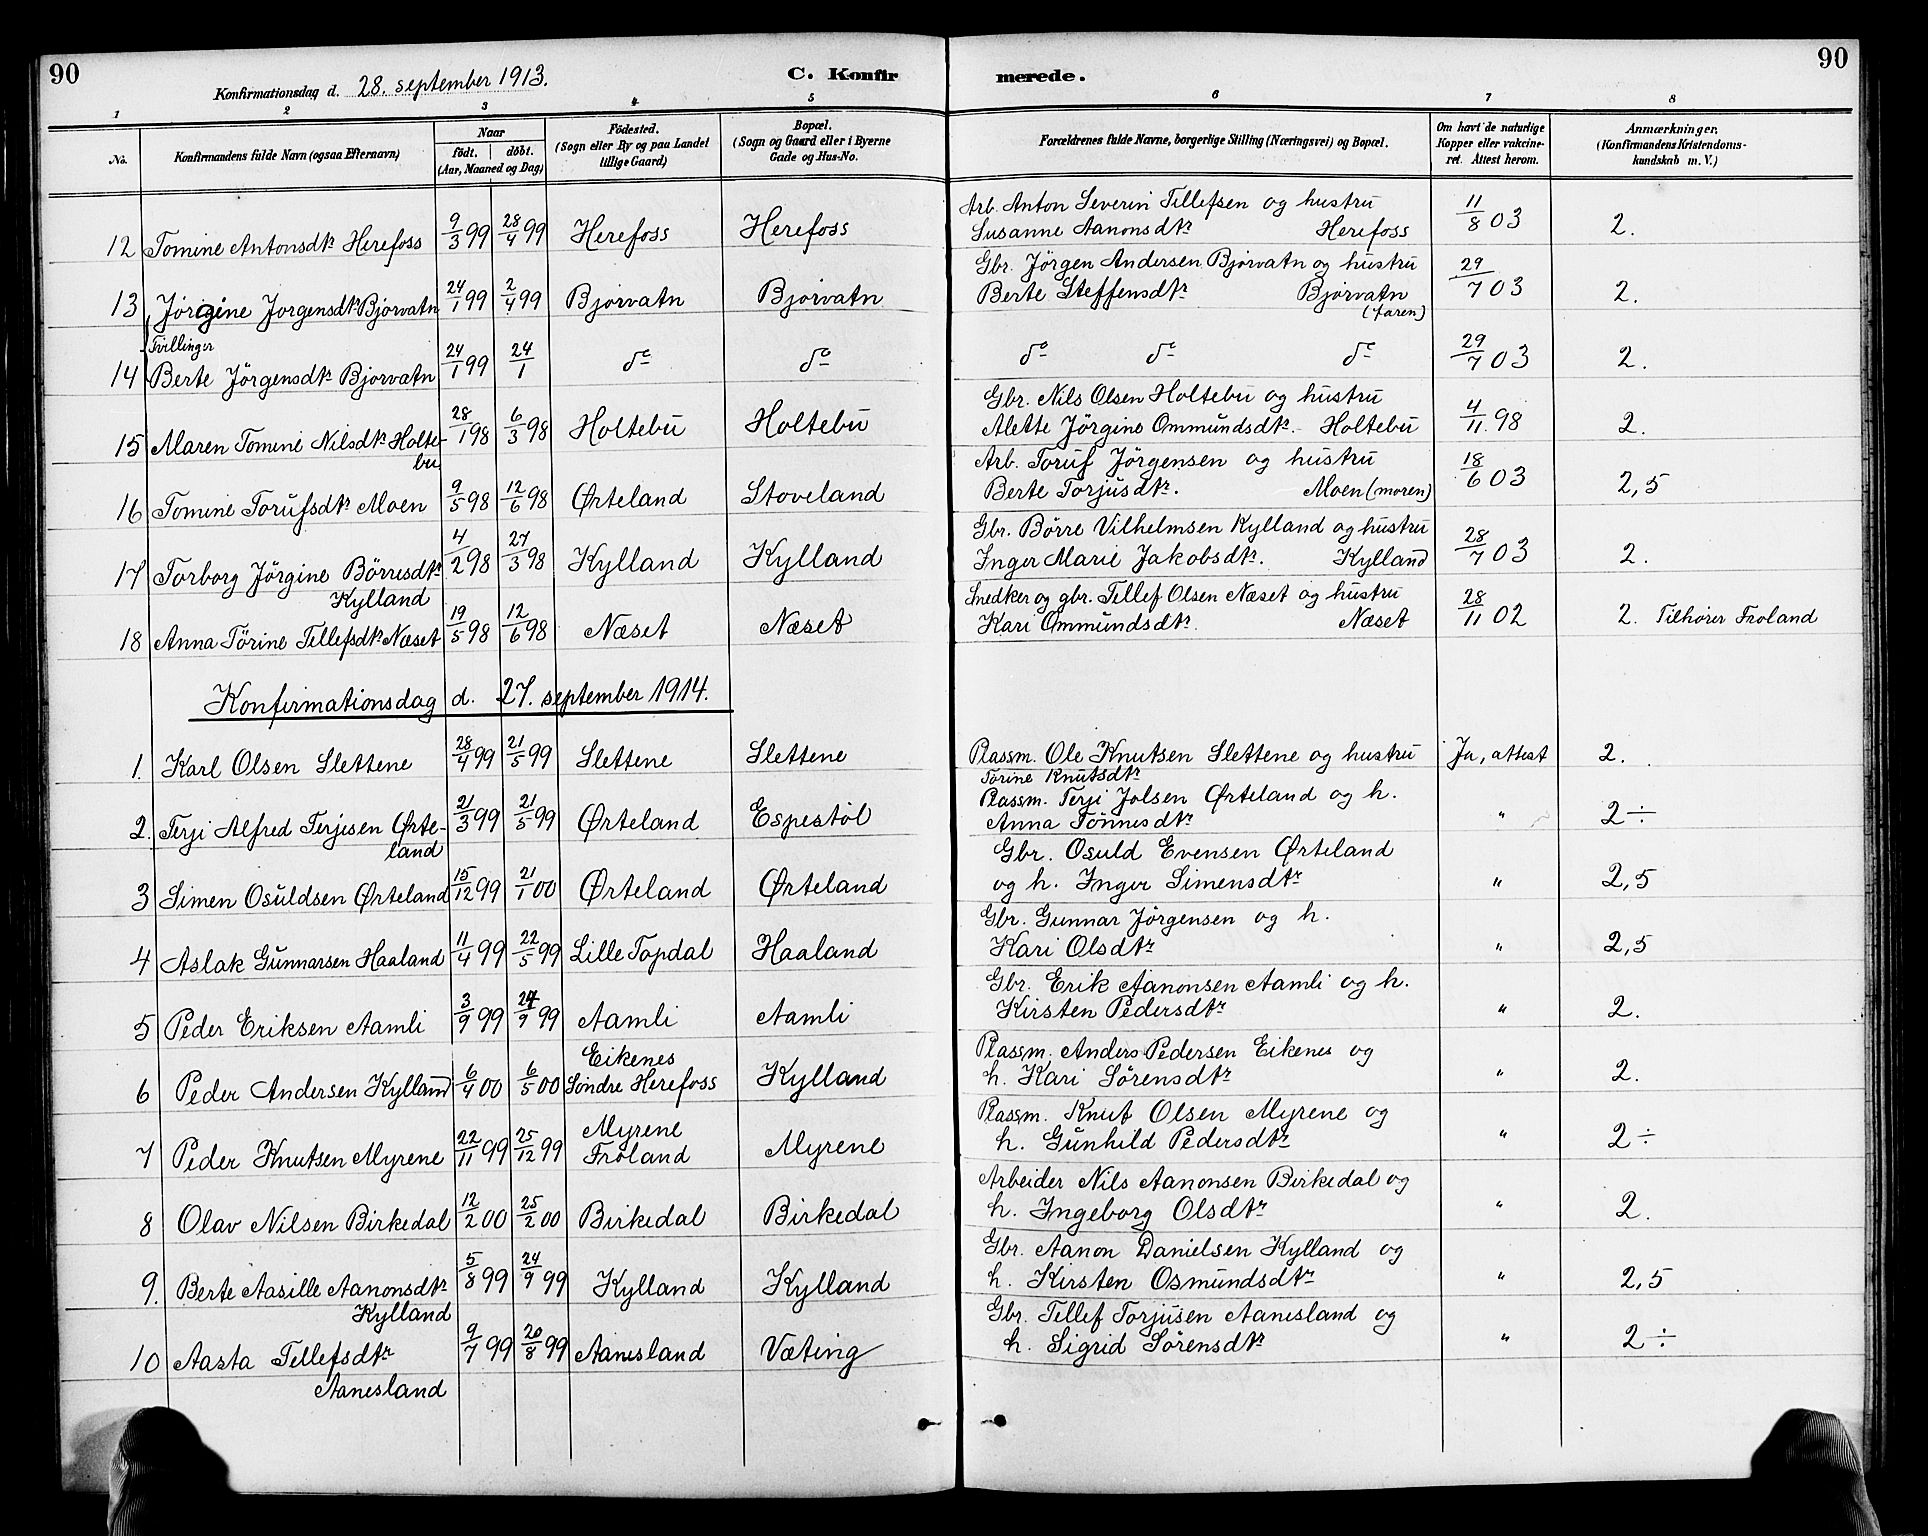 90
Konfirmationsdag d. 28. september 1913.
C. Konfirmerede.
90
1 2 3 4 5 6 7 8
No.
Konfirmandens fulde Navn (ogsaa Efternavn)
Naar
født. døbt.
(Aar, Maaned og Dag)
Fødested.
(Sogn eller By og paa Landet
tillige Gaard)
Bopæl.
(Sogn og Gaard eller i Byerne
Gade og Hus-No.
Forældrenes fulde Navne, borgerlige Stilling (Næringsvei) og Bopæl.
Om havt de naturlige
Kopper eller vakcine-
ret. Attest herom.
Anmærkninger.
(Konfirmandens Kristendoms-
kundskab m. V.)
12 Tomine Antonsdtr Herefoss 9/3 99 28/4 99 Herefoss Herefoss Arb. Anton Severin Tellefsen og hustru
Susanne Aanonsdtr Herefoss 11/8 03 2.
13 Jörgine Jorgensdtr Bjorvatn 24/1 99 2/4 99 Bjorvatn Bjorvatn Gbr. Jörgen Andersen Bjorvatn og hustru
Berte Steffensdtr Bjorvatn 29/7 03 2.
(faren)
Tvillinger
14 Berte Jörgensdtr Bjorvatn 24/1 99 24/1 do do do do do 29/7 03 2.
15 Maren Tomine Nilsdtr Holte- 28/1 98 6/3 98 Holtebu Holtebu Gbr. Nils Olsen Holtebu og hustru
bu Alette Jörgine Ommundsdtr. Holtebu 4/11. 98 2.
16 Tomine Torufsdtr Moen 9/5 98 12/6 98 Ørteland Stoveland Arb. Toruf Jörgensen og hustru
Berte Torjusdtr. Moen (moren) 18/6 03 2,5
17 Torborg Jörgine Börresdtr 4/2 98 27/3 98 Kylland Kylland Gbr. Börre Vilhelmsen Kylland og hustru
Kylland Inger Marie Jakobsdtr. Kylland 28/7 03 2.
18 Anna Törine Tellefsdtr Næset 19/5 98 12/6 98 Næset Næset Snedker og gbr. Tellef Olsen Næset og hustru
Kari Ommundsdtr. Næset 28/11 02 2. Tilhorer Froland
Konfirmationsdag d. 27. september 1914.
1. Karl Olsen Slettene 28/4 99 21/5 99 Slettene Slettene Plassm. Ole Knutsen Slettene og hustru Ja, attest 2.
Torine Knutsdtr
2. Terji Alfred Terjesen Ørte- 21/3 99 21/5 99 Ørteland Espestöl Plassm. Terji Jolsen Ørteland og h.
land Anna Tönnesdtr " 2 ÷
3 Simen Osuldsen Ørteland 15/12 99 21/1 00 Ørteland Ørteland Gbr. Osuld Evensen Ørteland
og h. Inger Simensdtr " 2,5
4 Aslak Gunnarsen Haaland 11/4 99 22/5 99 Lille Topdal Haaland Gbr. Gunnar Jörgensen og h.
Kari Olsdtr " 2,5
5 Peder Eriksen Aamli 3/9 99 24/9 99 Aamli Aamli Gbr. Erik Aanonsen Aamli og h.
Kirsten Pedersdtr " 2.
6 Peder Andersen Kylland 6/4 00 6/5 00 Eikenes
Söndre Herefoss Kylland Plassm. Anders Pedersen Eikenes og
h. Kari Sörensdtr " 2.
7 Peder Knutsen Myrene 22/11 99 25/12 99 Myrene
Froland Myrene Plassm. Knut Olsen Myrene og
h. Gunhild Pedersdtr " 2 ÷
8 Olav Nilsen Birkedal 12/2 00 25/2 00 Birkedal Birkedal Arbeider Nils Aanonsen Birkedal og
h. Ingeborg Olsdtr " 2.
9. Berte Aasille Aanonsdtr 5/8 99 24/9 99 Kylland Kylland Gbr. Aanon Danielsen Kylland og
Kylland h. Kirsten Osmundsdtr " 2,5
10 Aasta Tellefsdtr 9/7 99 20/8 99 Aanesland Væting Gbr. Tellef Torjusen Aanesland og
Aanesland h. Sigrid Sörensdtr " 2 ÷